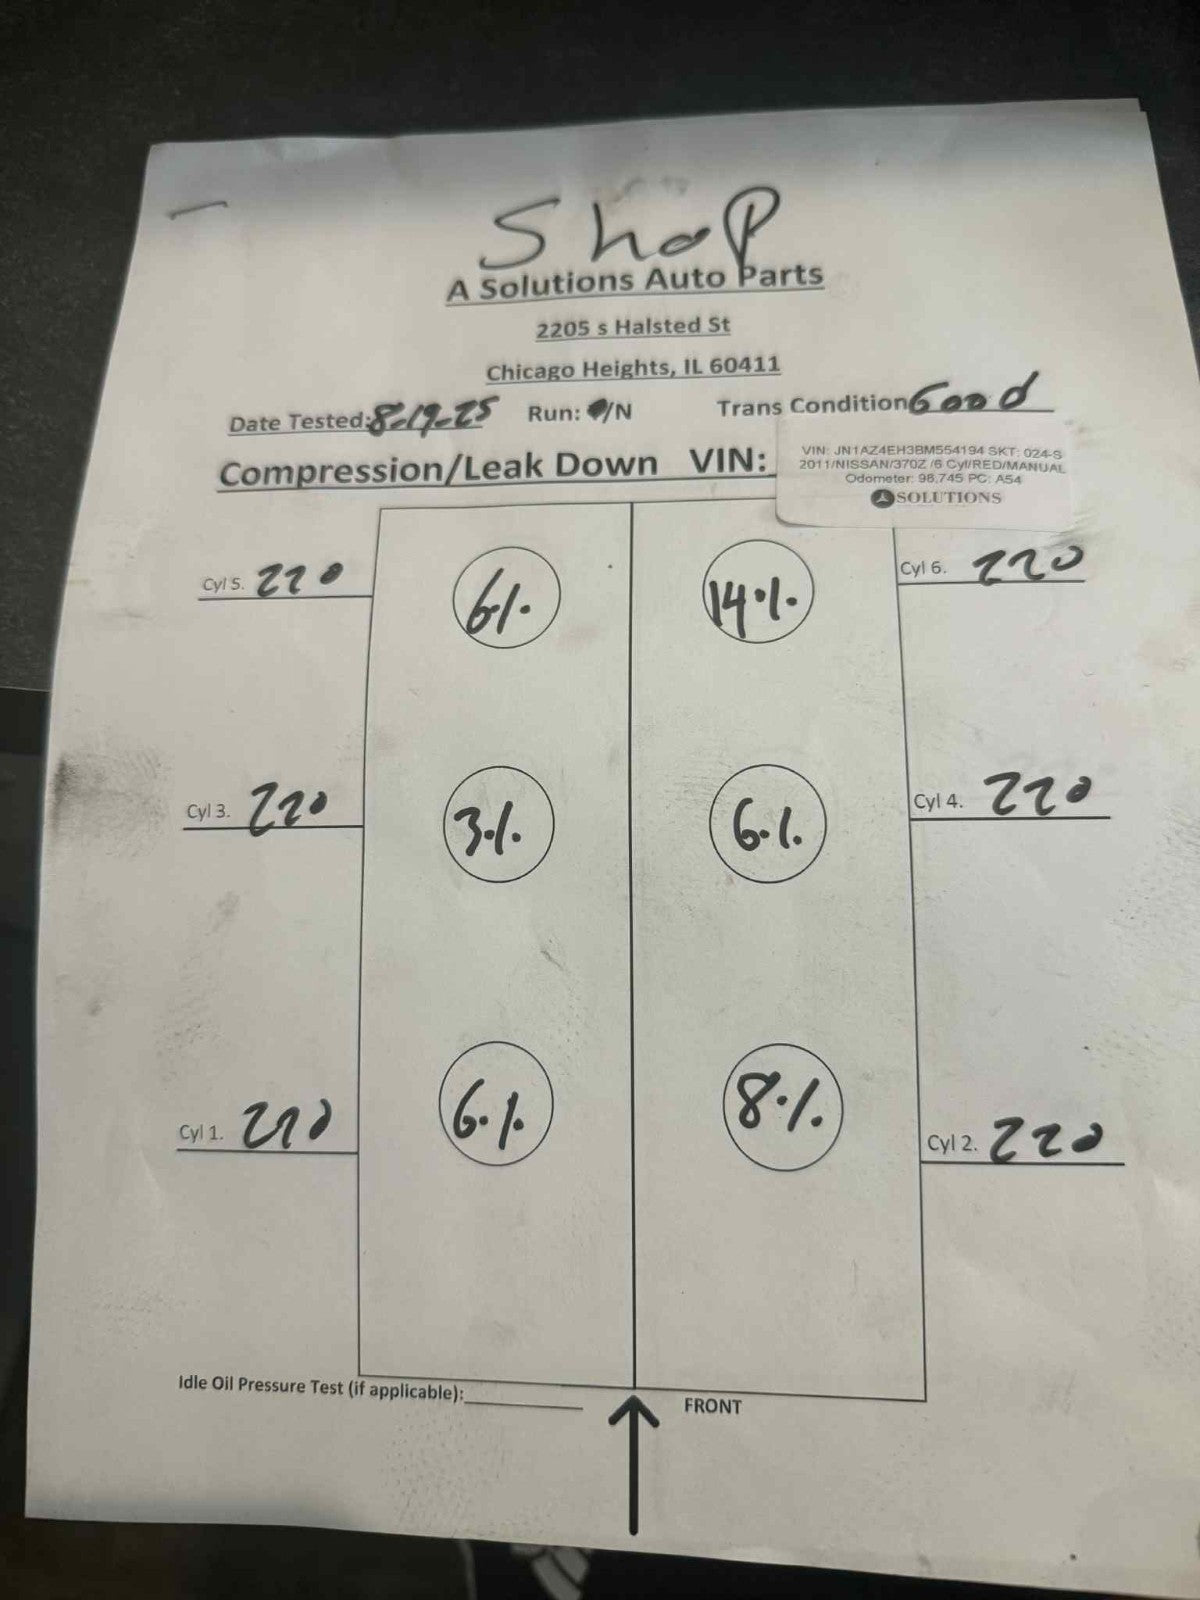 Shop
A Solutions Auto Parts
2205 s Halsted St
Chicago Heights, IL 60411
Date Tested: 8-19-25 Run: /N Trans Condition Good
Compression/Leak Down VIN:
VIN: JN1AZ4EH3BM554194 SKT: 024-S
2011/NISSAN/370Z /6 Cyl/RED/MANUAL
Odometer: 98,745 PC: A54
SOLUTIONS
Cyl 5. 220 6% 14% Cyl 6. 220
Cyl 3. 220 3% 6% Cyl 4. 220
Cyl 1. 210 6% 8% Cyl 2. 220
Idle Oil Pressure Test (if applicable):
FRONT